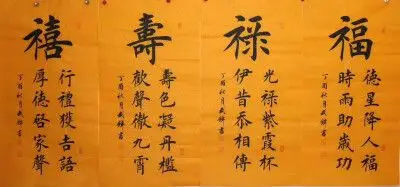 福
德星降人福
時雨助歲功
丁酉秋月書
禄
光禄紫霞杯
伊昔忝相傳
丁酉秋月書
壽
壽色凝丹檻
歡聲徹九霄
丁酉秋月書
禧
行禮獲吉語
厚德啓家聲
丁酉秋月書